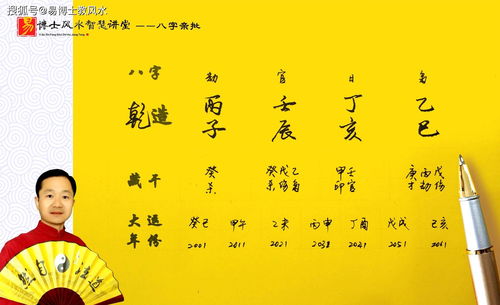 搜狐号@易博士教风水
易 博士风水智慧讲堂 ——八字亲批
八字 劫 官 日 枭
乾造 丙子 壬辰 丁亥 乙巳
藏干 癸杀 癸戊乙 甲壬 庚丙戊
杀伤枭 印官 才劫伤
大运 癸巳 甲午 乙未 丙申 丁酉 戊戌 己亥
年份 2001 2011 2021 2031 2041 2051 2061